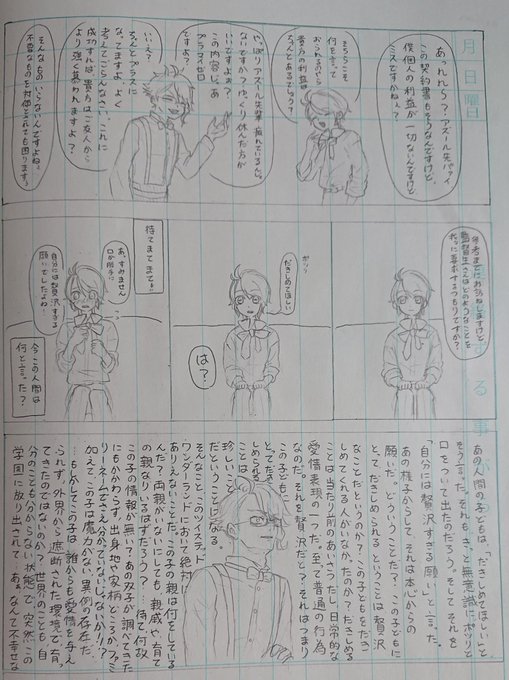 月 日 曜日
あっれれ〜？アズール先パァイ、
この契約書もそうなんですけど、
僕個人の利益が一切ないんですけど、
ミスですかねぇ？
そちらこそ
何を言って
おられるのやら
貴方の利益は
ちゃんとあるでしょう？
やっぱりアズール先輩、疲れているんじゃ
ないですか？ゆっくり休んだ方が
いいですよぉ？
この内容じゃあ
プラマイゼロ
ですよ？
いいえ？
ちゃんとプラスに
なってますよ。よく
考えてごらんなさい、これに
成功すれば貴方はご友人から
より強く慕われますよ？
そんなもの、いらないんですよねぇ。
不要なものを対価とされても困ります〜
参考までにお尋ねしますけど、
監督生さんはどのようなことを
我々に要求するつもりですか？
ポツリ
だきしめてほしい
は？
待てまてまて！！
あ、すみません
口が勝手に
自分には贅沢すぎる
願いでしたよね…
今この人間は
何と言った？
する事
あの人間の子どもは、「だきしめてほしい」と
そう言った。それもきっと無意識にポツリと
口をついて出たのだろう。そしてそれを
「自分には贅沢すぎる願い」と言った。
あの様子からして、それは本心からの
願いだ。どういうことだ？この子どもに
とって、だきしめられるということは贅沢
なことだというのか？この子どもをだき
しめてくれる人がいなかったのか？だきしめる
ことは当たり前のあいさつだし、日常的な
愛情表現の一つだ。至って普通の行為
なのだ。それを贅沢だと？それはつまり
この子どもに
とってだき
しめられる
ことは
珍しいこと
だということになる。
そんなこと、このツイステッド
ワンダーランドにおいて絶対に
ありえないことだ。この子の親は何をしている
んだ？両親がいないにしても、親戚や育て
の親なりいるはずだろう？……待て、何故
この子の情報が無い？あの双子が調べてきた
にもかかわらず、出身地や家柄どころかファミ
リーネームでさえ分かっていないじゃないか！？
加えて、この子は魔力がない異例の存在だ。
…もしかしてこの子は、誰からも愛情を与え
られず、外界から遮断された環境で育っ
てきたのではないのか？世界のことも自
分のことも分からない状態で、突然この
学園に放り出されて…ああ、なんて不幸せな